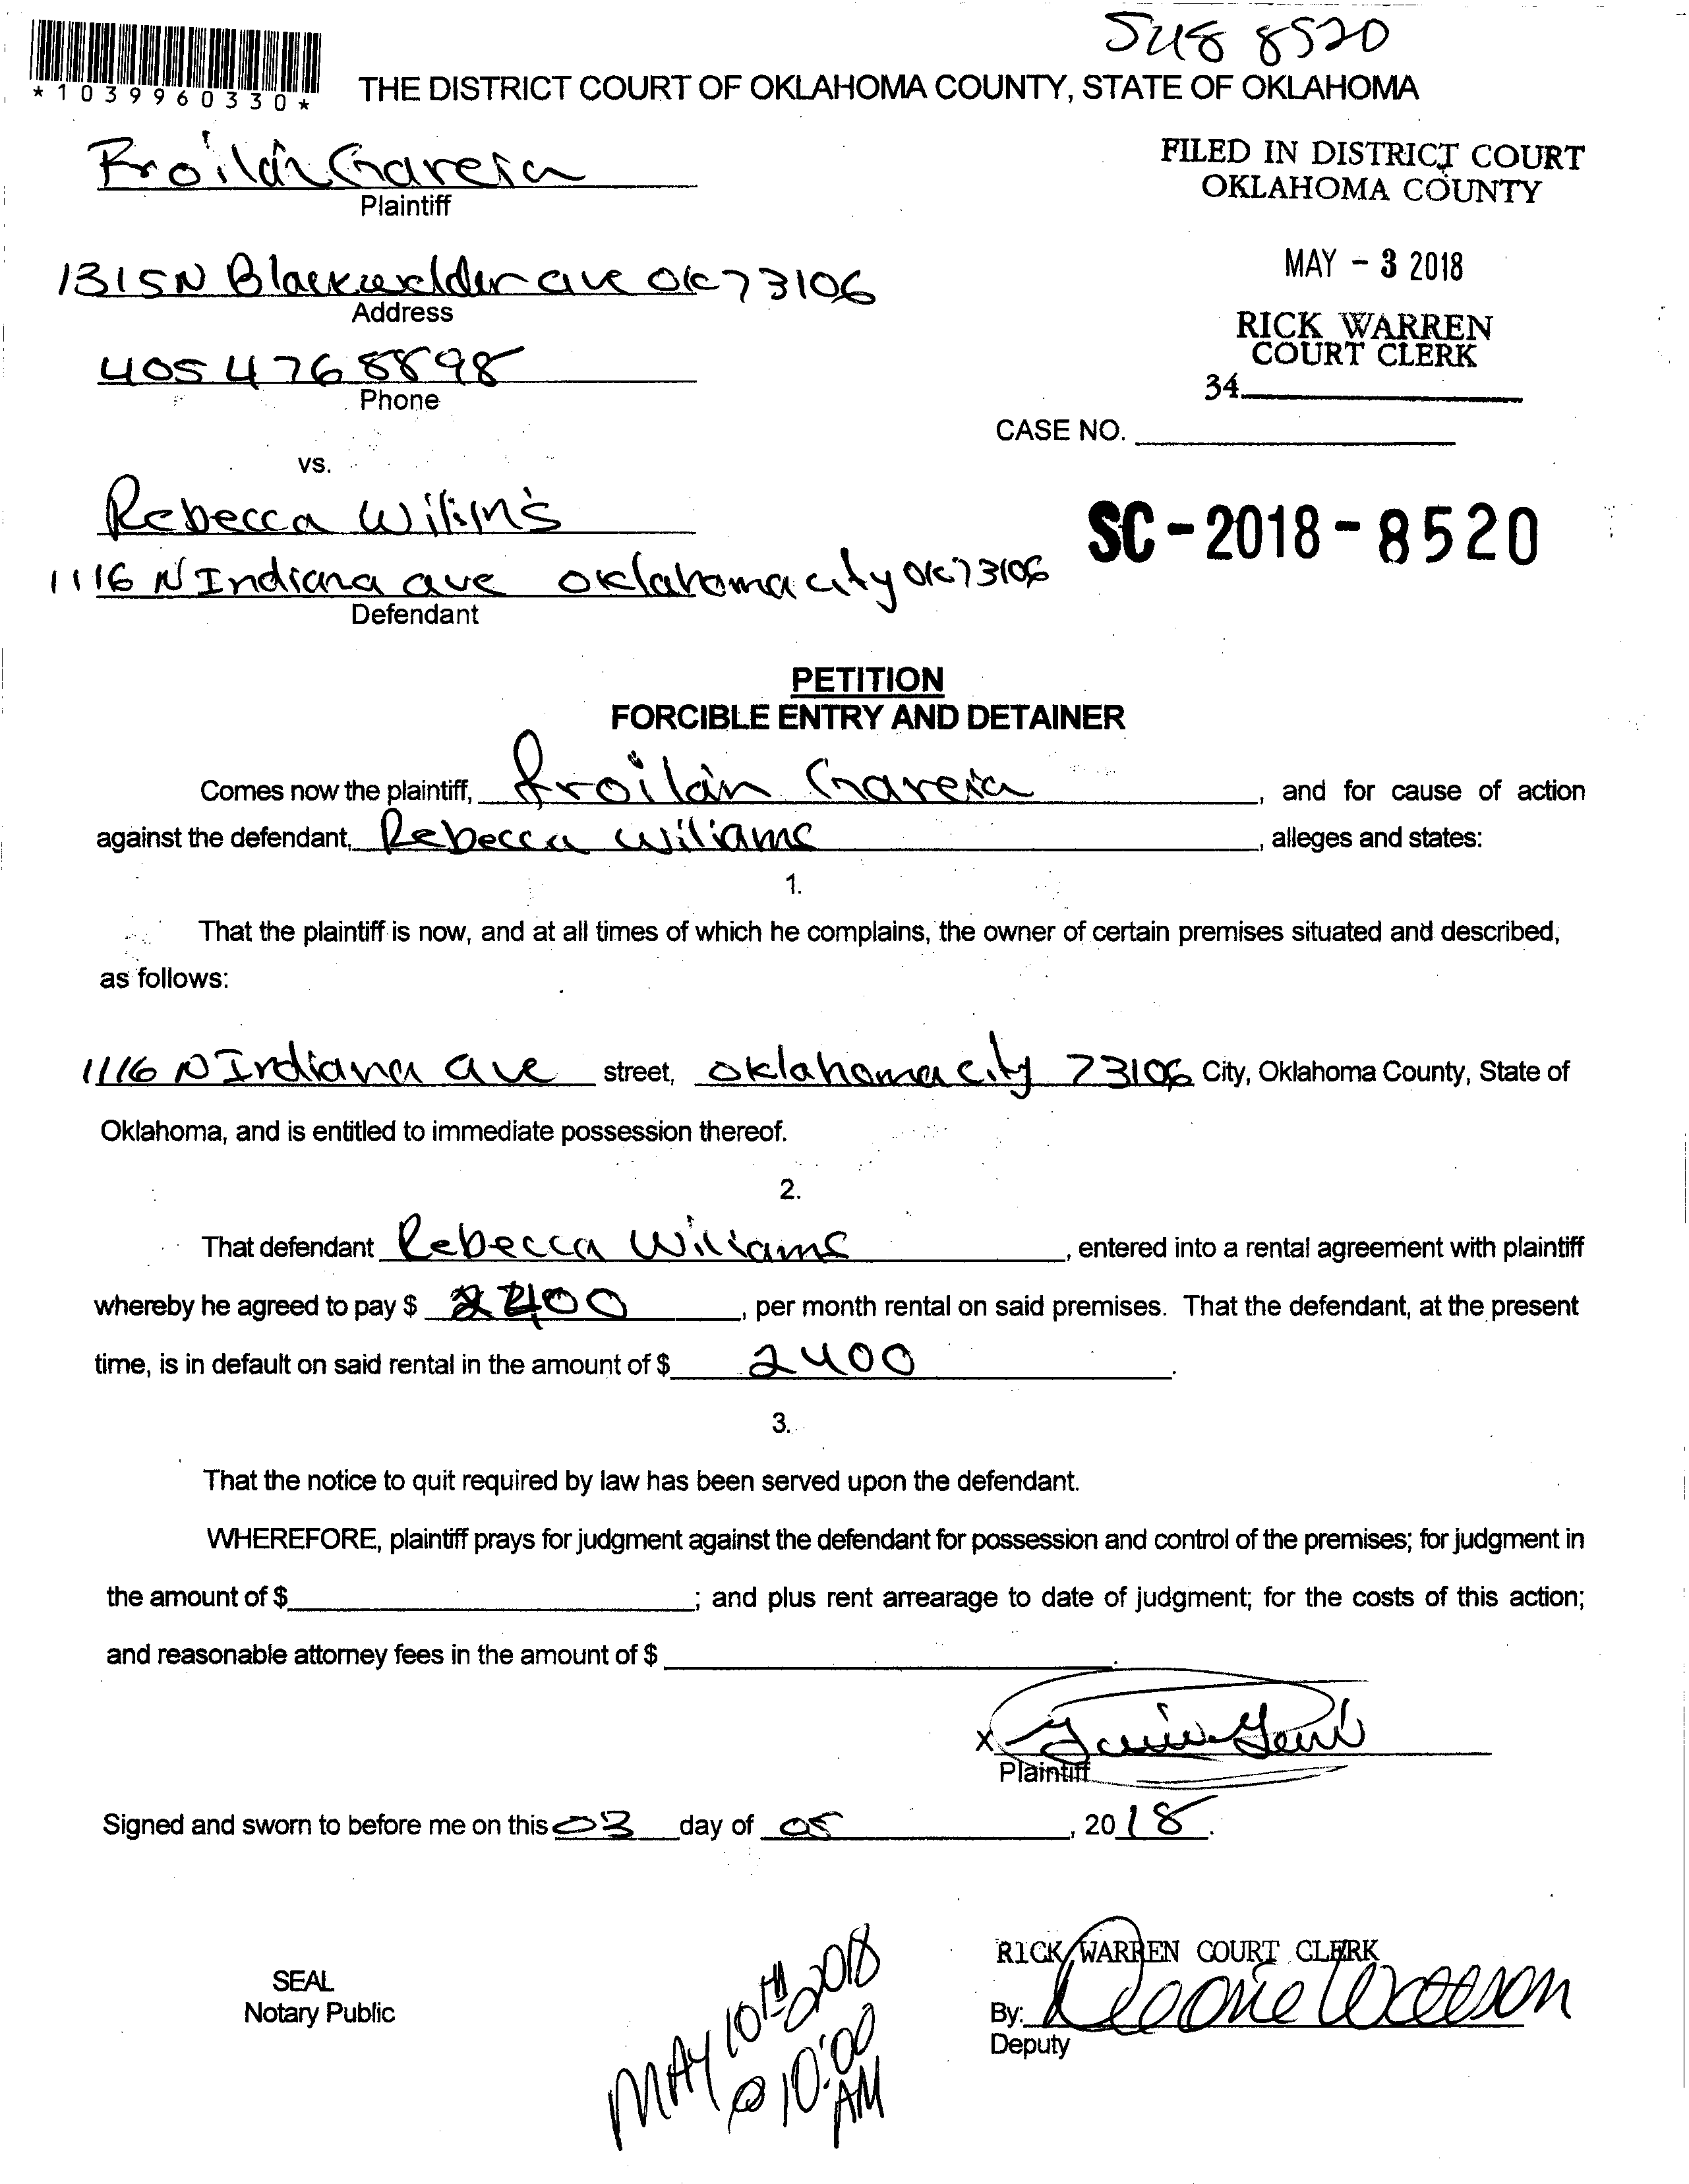 8520
*1039960330*
THE DISTRICT COURT OF OKLAHOMA COUNTY, STATE OF OKLAHOMA
Froilán Garcia
Plaintiff
FILED IN DISTRICT COURT
OKLAHOMA COUNTY
1315 N Blackwelder ave OK 73106
Address
MAY - 3 2018
RICK WARREN
COURT CLERK
405 476 8898
Phone
34
CASE NO.
vs.
Rebecca
SC-2018-8520
1116 N Indiana ave oklahoma city OK 73106
Defendant
PETITION
FORCIBLE ENTRY AND DETAINER
Comes now the plaintiff, froilán Garcia, and for cause of action
against the defendant, Rebecca wiliams, alleges and states:
1.
That the plaintiff is now, and at all times of which he complains, the owner of certain premises situated and described,
as follows:
1116 N Indiana ave street, oklahoma city 73106 City, Oklahoma County, State of
Oklahoma, and is entitled to immediate possession thereof.
2.
That defendant Rebecca Wiliams, entered into a rental agreement with plaintiff
whereby he agreed to pay $, per month rental on said premises. That the defendant, at the present
time, is in default on said rental in the amount of $ 2400.
3.
That the notice to quit required by law has been served upon the defendant.
WHEREFORE, plaintiff prays for judgment against the defendant for possession and control of the premises; for judgment in
the amount of $; and plus rent arrearage to date of judgment; for the costs of this action;
and reasonable attorney fees in the amount of $.
X
Plaintiff
Signed and sworn to before me on this 03 day of 05, 2018.
SEAL
Notary Public
MAY 10TH 2018
@ 10:00
AM
RICK WARREN COURT CLERK
By:
Deputy